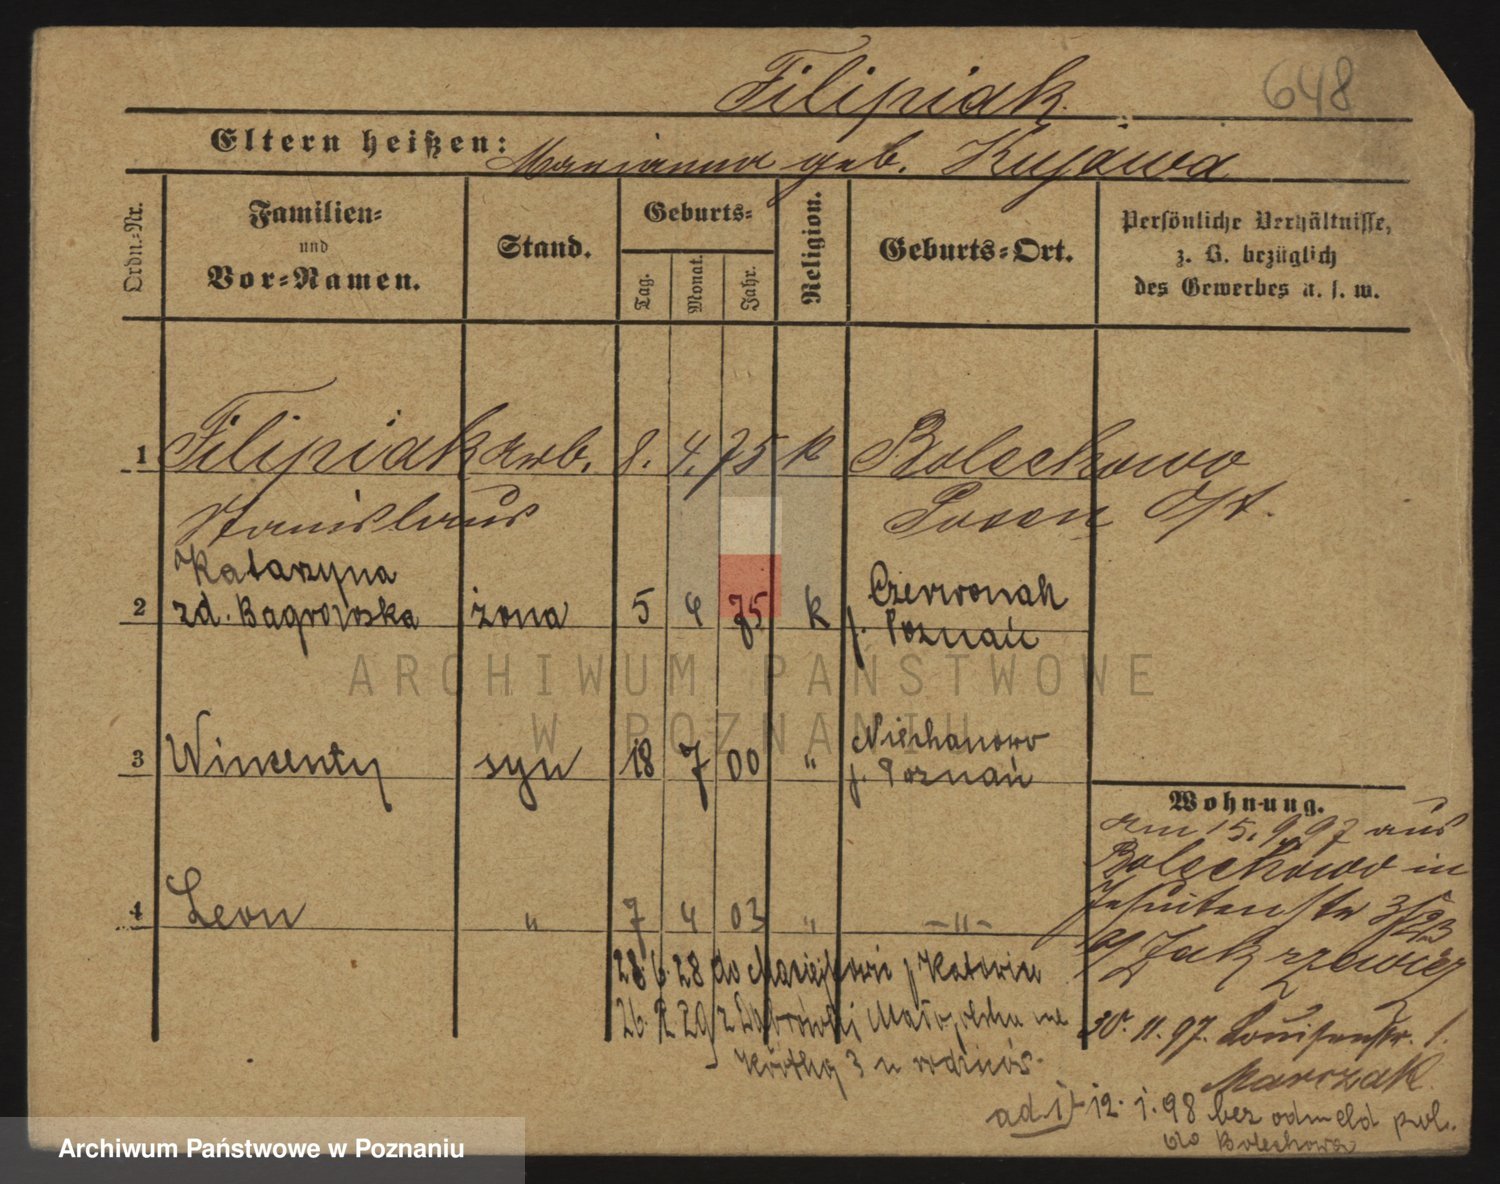 Filipiak.
648
Eltern heißen:
Marianna geb. Kujawa
Ordn.-Nr.
Familien-
und
Vor-Namen.
Stand.
Geburts-
Tag.
Monat.
Jahr.
Religion.
Geburts-Ort.
Persönliche Verhältnisse,
z. B. bezüglich
des Gewerbes u. s. w.
1 Filipiak Arb. 8. 4. 75 k Bolechowo
Stanislaus Posen Ost.
Katarzyna Czerwonak
2 zd. Bagrowska żona 5 4 75 k p. Poznań
Niechanowo
3 Wincenty syn 18 7 00 " p. Poznań
4 Leon " 7 4 03 " -"-
Wohnung.
am 15. 9. 97 aus
Bolechowo in
Jesuitenstr
30. 11. 97. Louisenstr. 1.
Marczak
28. 6. 28 do p Katowice
26. 29 z Małopolska na
3 u
ad. 1) 12. 1. 98 bez odmeld pol.
do Bolechowa
ARCHIWUM PAŃSTWOWE
W POZNANIU
Archiwum Państwowe w Poznaniu